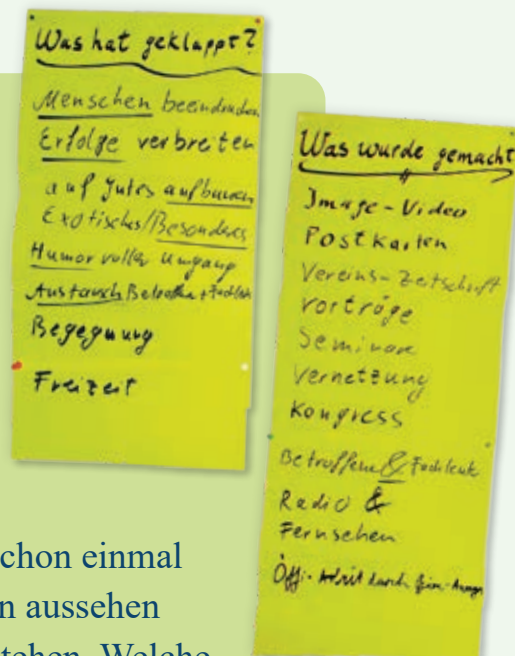 Was hat geklappt?
Menschen beeindrucken
Erfolge verbreiten
auf gutes aufbauen
Exotisches/Besonderes
Humorvoller Umgang
Austausch Betroffene + Fachleute
Begegnung
Freizeit
Was wurde gemacht
Image-Video
Postkarten
Vereins-Zeitschrift
Vorträge
Seminare
Vernetzung
Kongress
Betroffene & Fachleute
Radio &
Fernsehen
Öffi-Arbeit durch
chon einmal
n aussehen
tehen. Welche